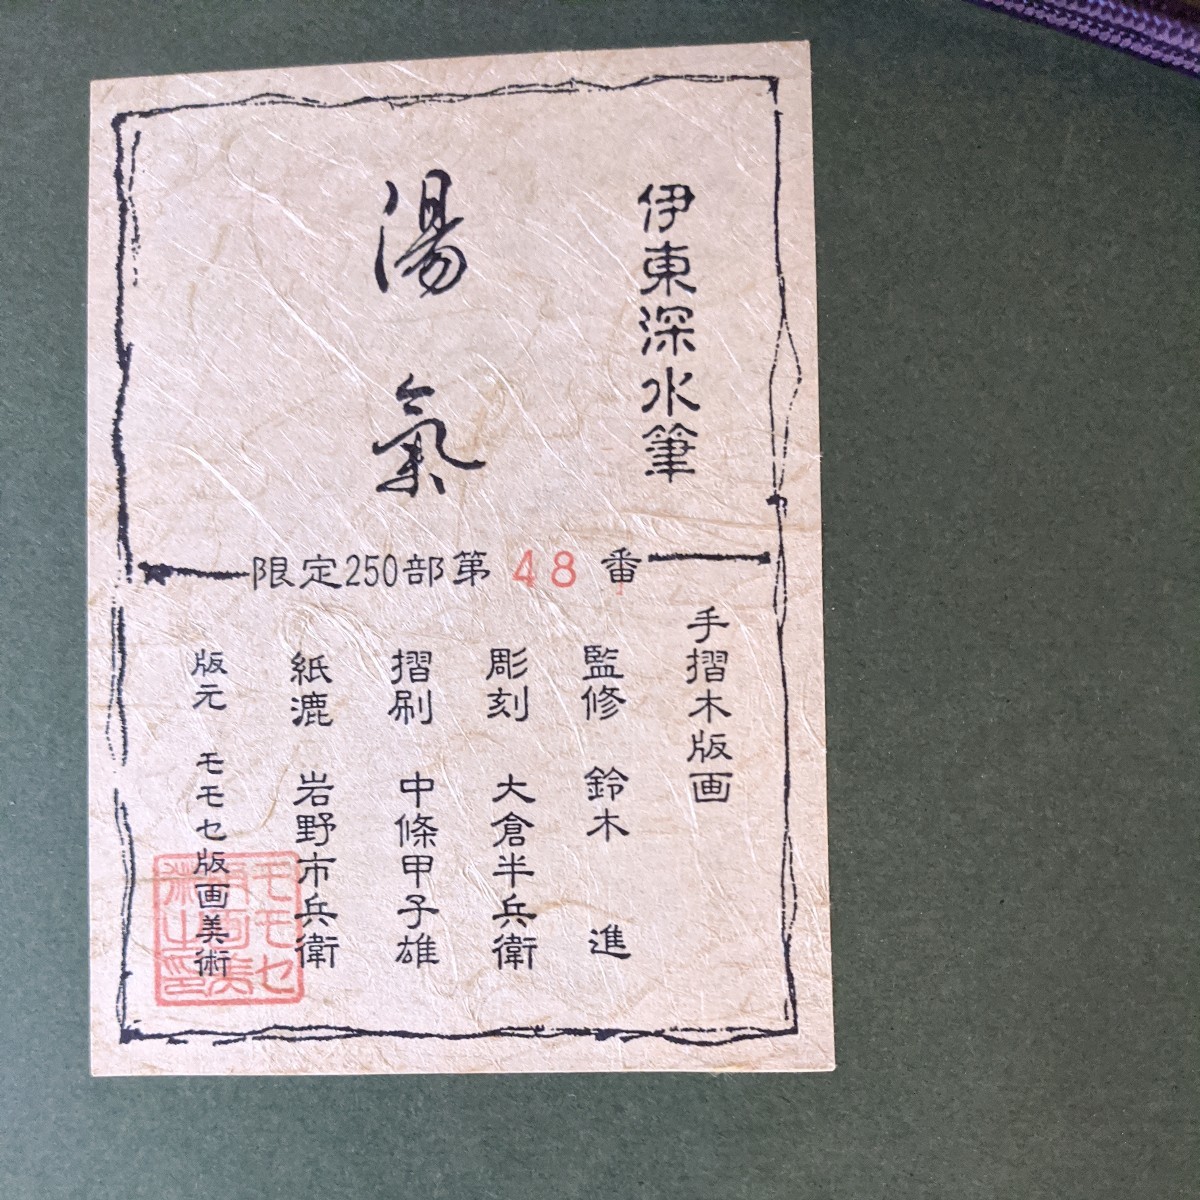 伊東深水筆
湯氣
限定250部第 48 番
手摺木版画
監修 鈴木 進
彫刻 大倉半兵衛
摺刷 中條甲子雄
紙漉 岩野市兵衛
版元 モモセ版画美術